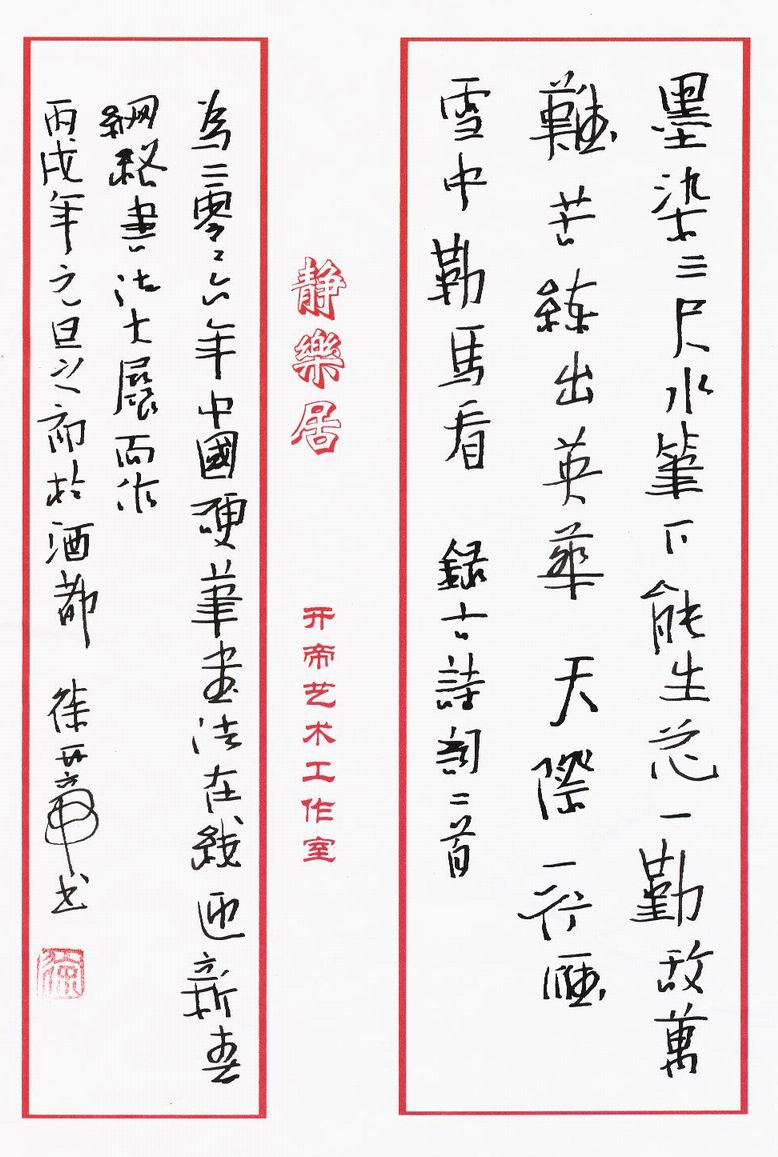 墨染三尺水筆下能生花一勤敌萬
難苦練出英華 天際一行雁
雪中勒馬看 録古詩詞二首
静樂居
开帝艺术工作室
為二零零六年中國硬筆書法在线迎新春
網絡書法大展而作
丙戌年元旦之前於酒都 徐开帝书
徐